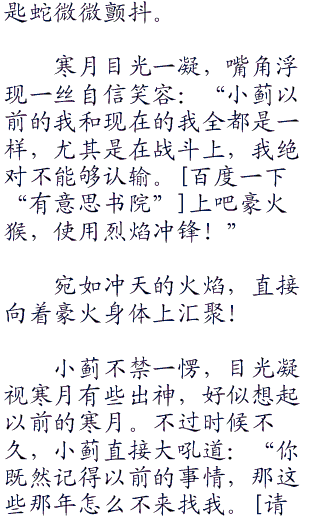 匙蛇微微颤抖。
寒月目光一凝，嘴角浮
现一丝自信笑容：“小蓟以
前的我和现在的我全都是一
样，尤其是在战斗上，我绝
对不能够认输。[百度一下
“有意思书院”]上吧豪火
猴，使用烈焰冲锋！”
宛如冲天的火焰，直接
向着豪火身体上汇聚！
小蓟不禁一愣，目光凝
视寒月有些出神，好似想起
以前的寒月。不过时候不
久，小蓟直接大吼道：“你
既然记得以前的事情，那这
些那年怎么不来找我。[请